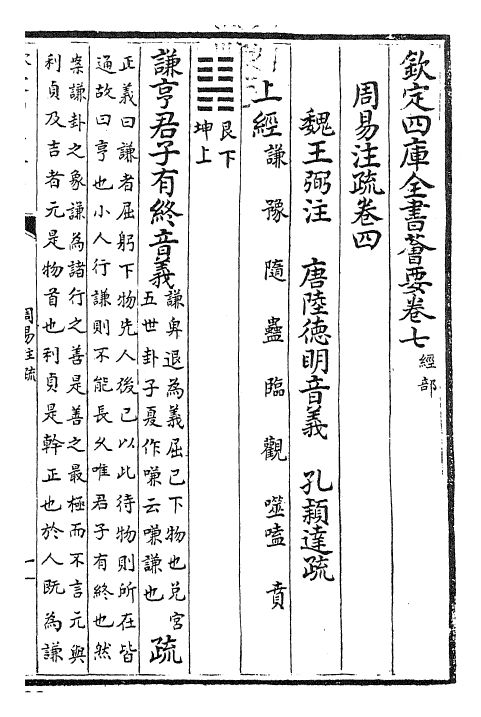 欽定四庫全書薈要卷七 經部
周易注疏卷四
魏王弼注 唐陸德明音義 孔穎達疏
上經 謙 豫 隨 蠱 臨 觀 噬嗑 賁
艮下
坤上
謙亨君子有終音義
謙卑退為義屈已下物也兌宮
五世卦子夏作嗛云嗛謙也
疏
正義曰謙者屈躬下物先人後已以此待物則所在皆
通故曰亨也小人行謙則不能長久唯君子有終也然
案謙卦之象謙為諸行之善是善之最極而不言元與
利貞及吉者元是物首也利貞是幹正也於人既為謙
周易注疏
一